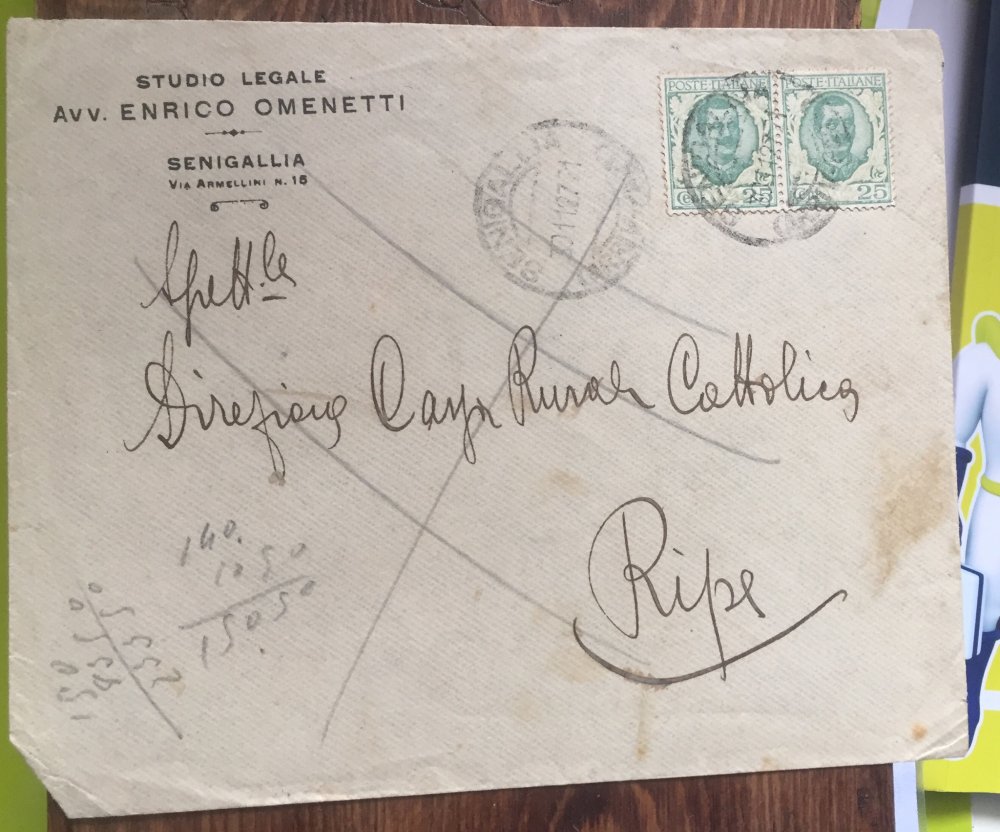 STUDIO LEGALE
Avv. ENRICO OMENETTI
SENIGALLIA
VIA ARMELLINI N. 15
POSTE ITALIANE POSTE ITALIANE
25 25
SENIGALLIA
Spett.le
Direzione Cassa Rurale Cattolica
Ripe
140.
10 50
150 50